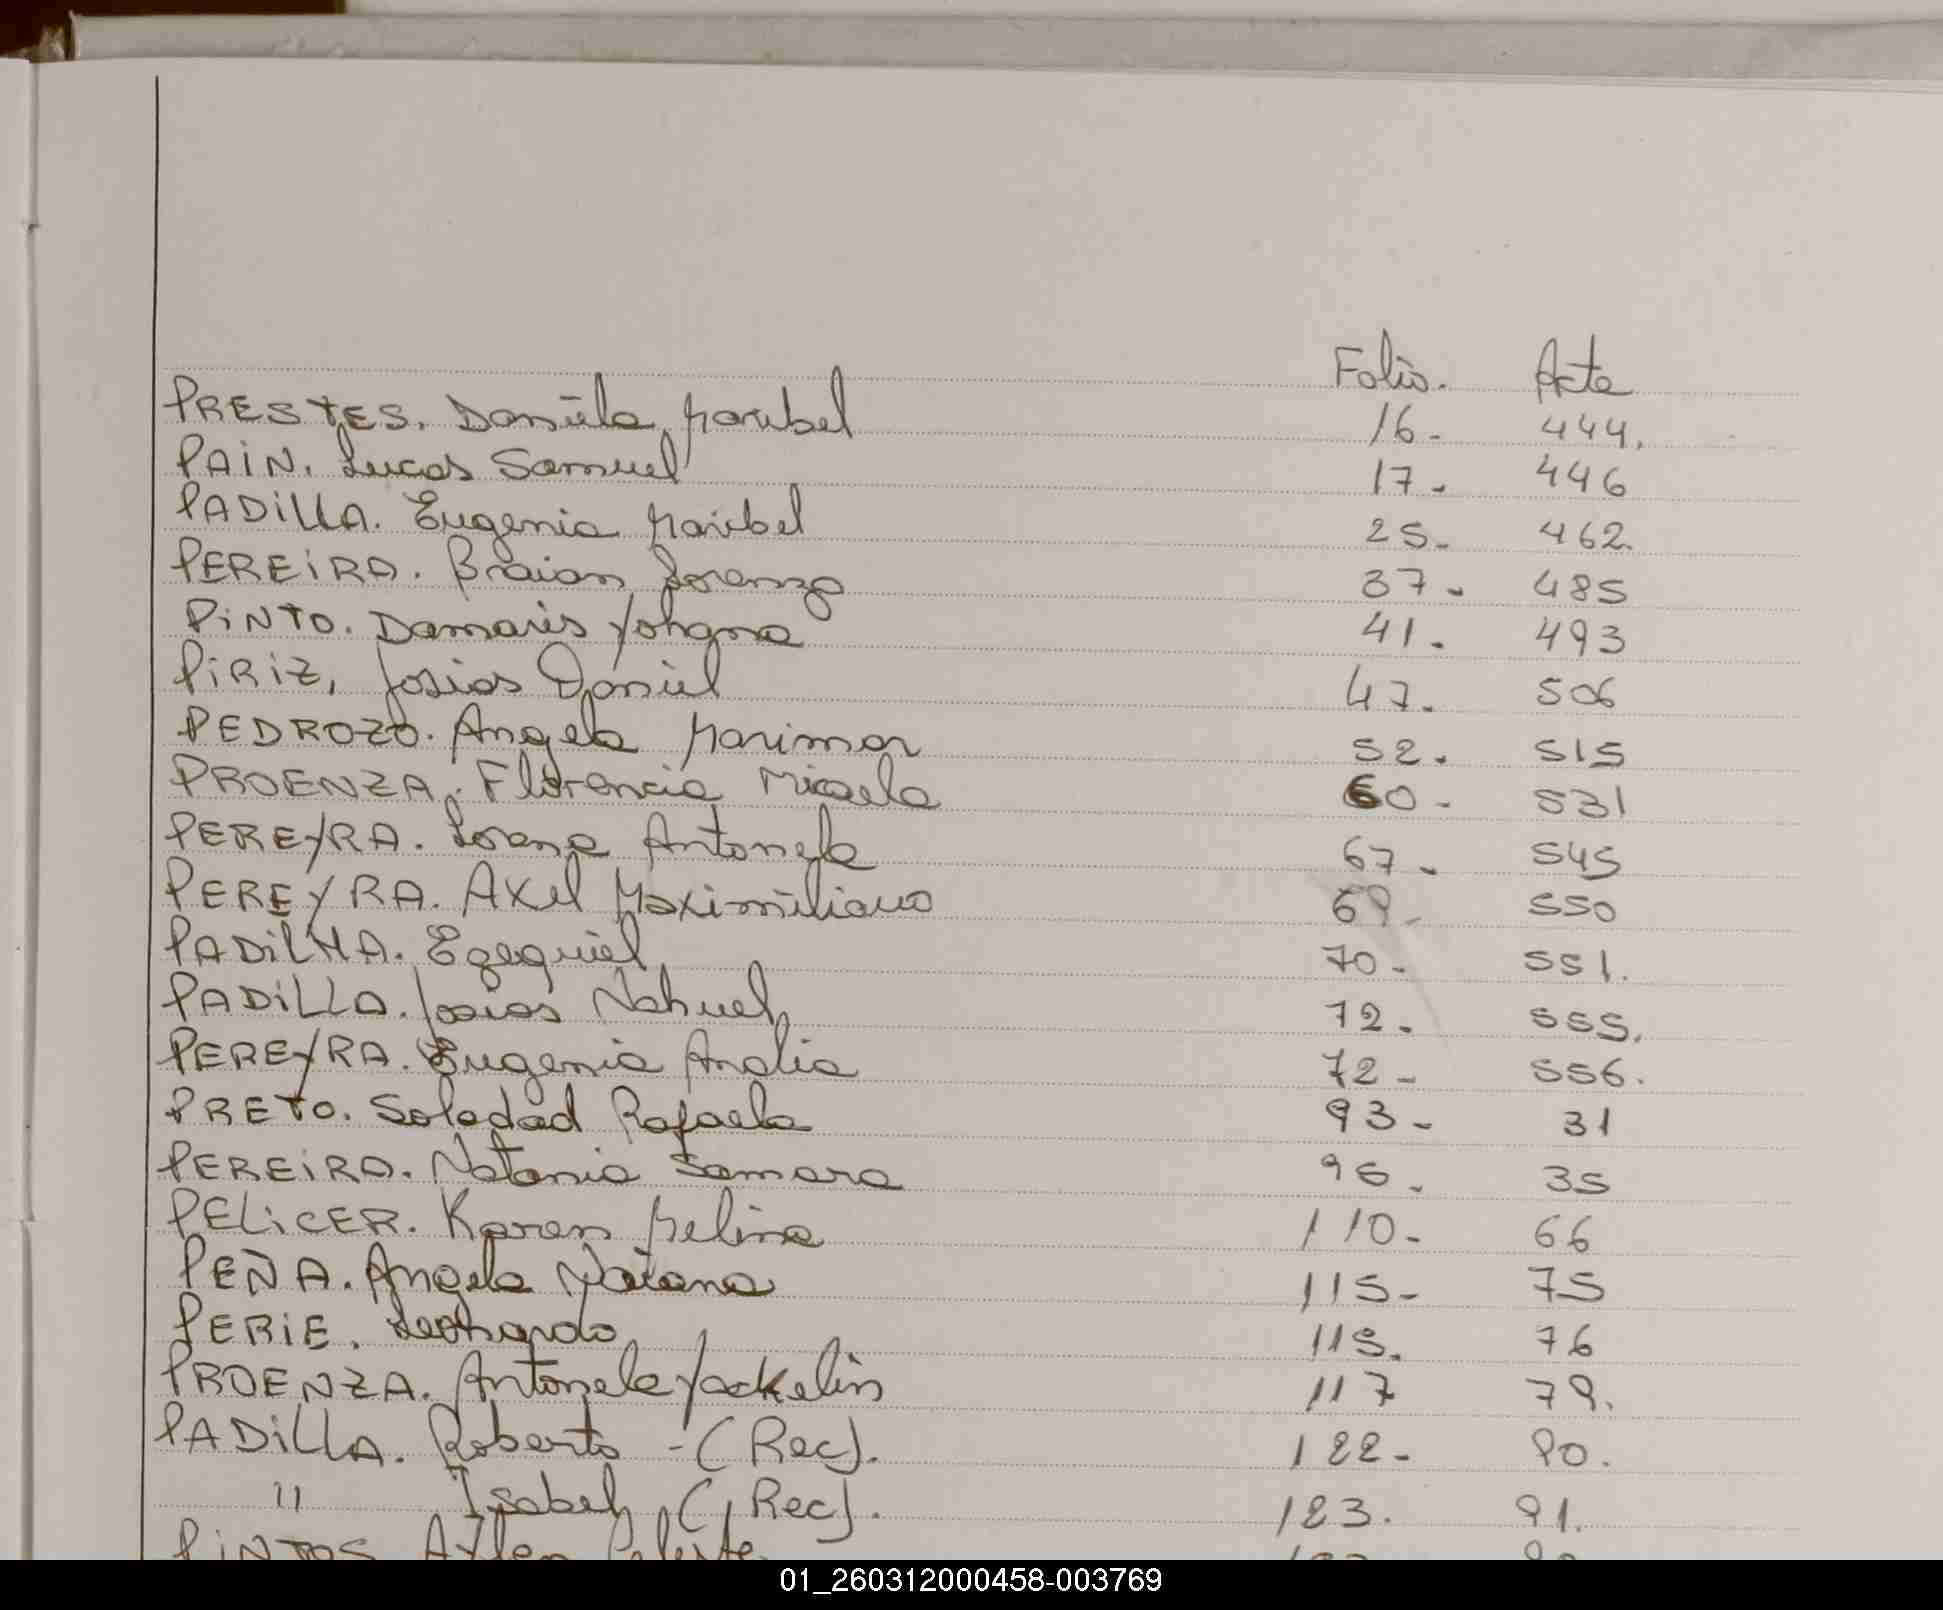 Folio. Acta
PRESTES. Daniela Maribel 16- 444.
PAIN. Lucas Samuel 17- 446
PADILLA. Eugenia Maribel 25- 462.
PEREIRA. Braian Lorenzo 37- 485
PINTO. Damaris Yohana 41. 493
PIRIZ, Josias Daniel 47. 506
PEDROZO. Angela Marimar 52. 515
PROENZA. Florencia Micaela 60- 531
PEREYRA. Lorena Antonela 67- 545
PEREYRA. Axel Maximiliano 69- 550
PADILHA. Ezequiel 70- 551.
PADILLA. Isaias Nahuel 72. 555.
PEREYRA. Eugenia Analia 72- 556.
PRETO. Soledad Rafaela 93- 31
PEREIRA. Natania Samara 95. 35
PELICER. Karen Melina 110- 66
PEÑA. Angela Naiana 115- 75
PERIE. Leonardo 115. 76
PROENZA. Antonela Yackelin 117 79.
PADILLA. Roberto -(Rec). 122- 90.
" Isabel (Rec). 123. 91.
PINTOS Aylen Celeste
01_260312000458-003769